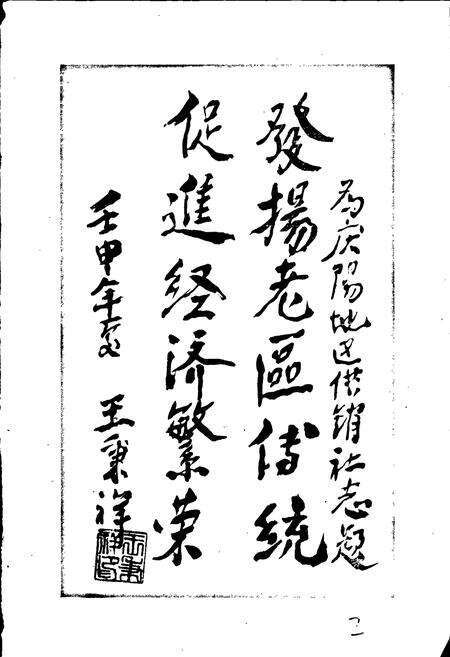 为庆阳地区供销社志题
發揚老區传统
促進经济繁荣
壬申年夏 王秉祥
王秉祥印